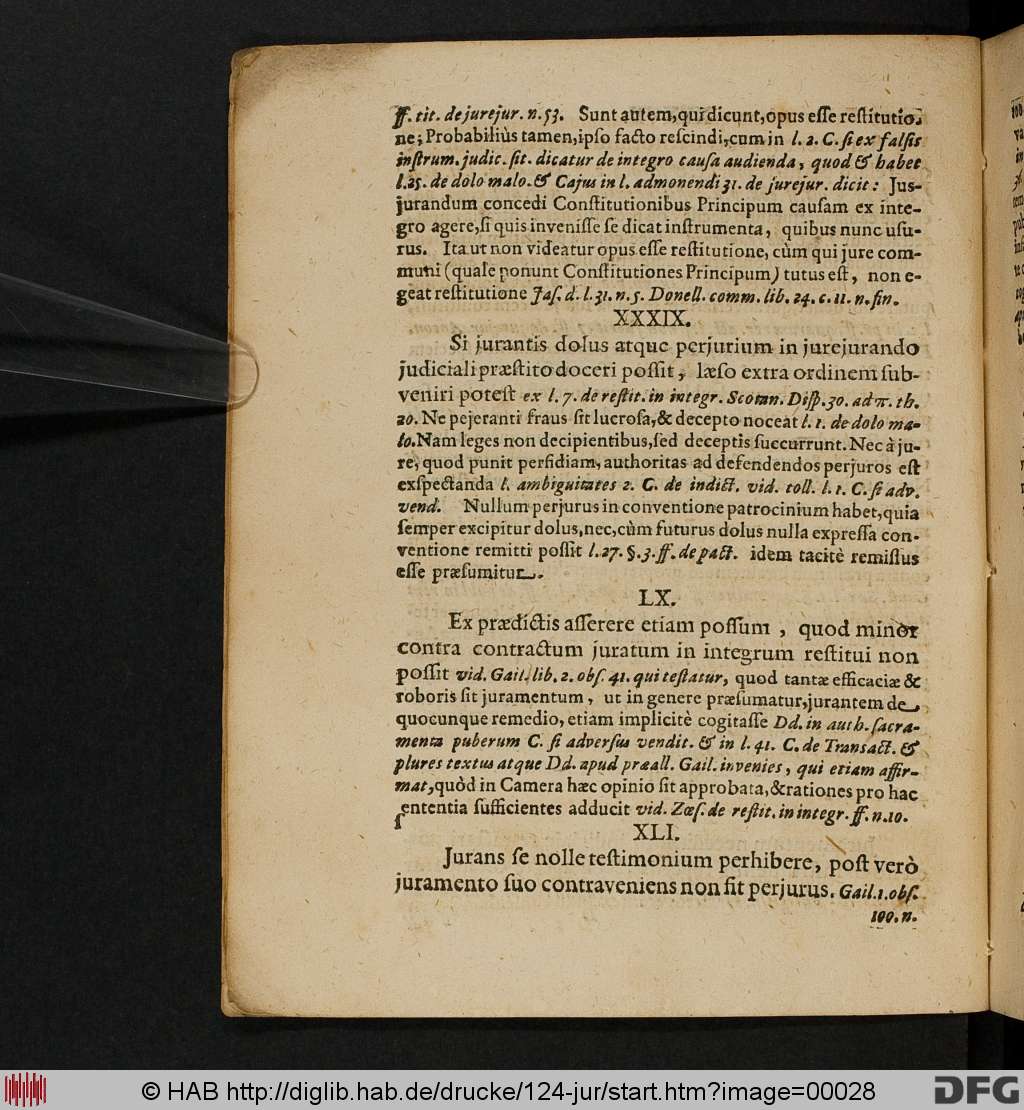 ff. tit. de jurejur. n. 53. Sunt autem, qui dicunt, opus eſſe reſtitutio-
ne; Probabiliùs tamen, ipſo facto reſcindi, cum in l. 2. C. ſi ex falſis
inſtrum. judic. ſit. dicatur de integro cauſa audienda, quod & habet
l. 25. de dolo malo. & Cajus in l. admonendi 31. de jurejur. dicit: Jus-
jurandum concedi Conſtitutionibus Principum cauſam ex inte-
gro agere, ſi quis inveniſſe ſe dicat inſtrumenta, quibus nunc uſu-
rus. Ita ut non videatur opus eſſe reſtitutione, cùm qui jure com-
muni (quale ponunt Conſtitutiones Principum) tutus eſt, non e-
geat reſtitutione Jaſ. d. l. 31. n. 5. Donell. comm. lib. 24. c. 11. n. fin.
XXXIX.
Si jurantis dolus atque perjurium in jurejurando
judiciali præſtito doceri poſſit, læſo extra ordinem ſub-
veniri poteſt ex l. 7. de reſtit. in integr. Scotan. Diſp. 30. ad π. th.
20. Ne pejeranti fraus ſit lucroſa, & decepto noceat l. 1. de dolo ma-
lo. Nam leges non decipientibus, ſed deceptis ſuccurrunt. Nec à ju-
re, quod punit perfidiam, authoritas ad defendendos perjuros eſt
exſpectanda l. ambiguitates 2. C. de indict. vid. toll. l. 1. C. ſi adv.
vend. Nullum perjurus in conventione patrocinium habet, quia
ſemper excipitur dolus, nec, cùm futurus dolus nulla expreſſa con-
ventione remitti poſſit l. 27. §. 3. ff. de pact. idem tacitè remiſſus
eſſe præſumitur.
LX.
Ex prædictis aſſerere etiam poſſum, quod minor
contra contractum juratum in integrum reſtitui non
poſſit vid. Gail. lib. 2. obſ. 41. qui teſtatur, quod tantæ efficaciæ &
roboris ſit juramentum, ut in genere præſumatur, jurantem de
quocunque remedio, etiam implicitè cogitaſſe Dd. in auth. ſacra-
menta puberum C. ſi adverſus vendit. & in l. 41. C. de Transact. &
plures textus atque Dd. apud præall. Gail. invenies, qui etiam affir-
mat, quòd in Camera hæc opinio ſit approbata, & rationes pro hac
ſententia ſufficientes adducit vid. Zœſ. de reſtit. in integr. ff. n. 10.
XLI.
Jurans ſe nolle teſtimonium perhibere, poſt verò
juramento ſuo contraveniens non fit perjurus. Gail. 1. obſ.
100. n.
© HAB http://diglib.hab.de/drucke/124-jur/start.htm?image=00028
DFG